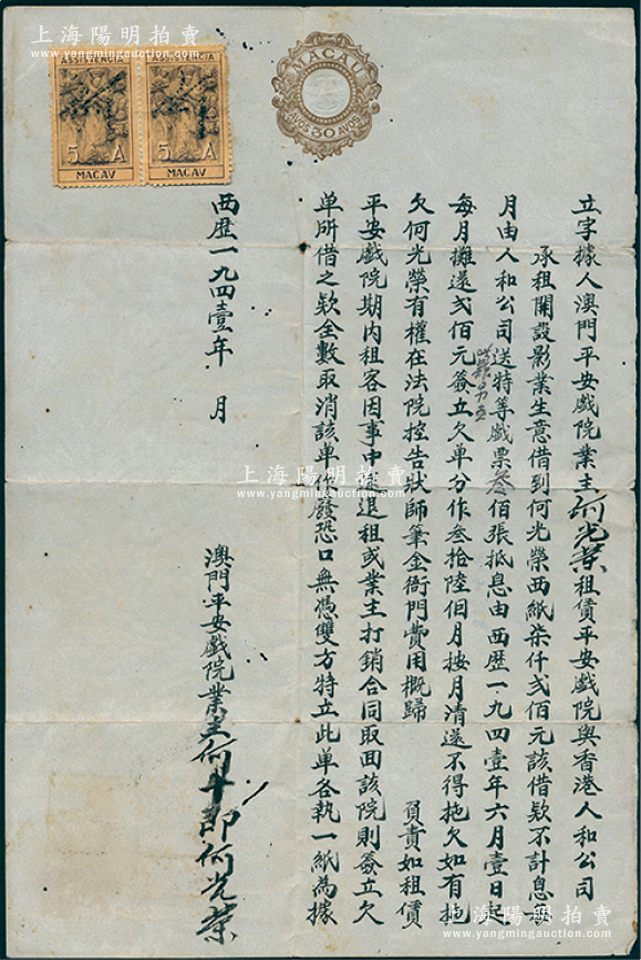 上海陽明拍賣
www.yangmingauction.com
ASSISTENCIA ASSISTENCIA
5 A 5 A
MACAU MACAU
MACAU
AVOS 30 AVOS
立字據人澳門平安戲院業主何光榮租賃平安戲院與香港人和公司
承租開設影業生意借到何光榮西紙柒仟弍佰元該借欵不計息每
月由人和公司送特等戲票叁佰張抵息由西歷一九四壹年六月壹日起
每月攤還弍佰元簽立欠單分作叁拾陸個月按月清還不得拖欠如有拖
欠何光榮有權在法院控告狀師筆金衙門費用概歸 負責如租賃
平安戲院期內租客因事中途退租或業主打銷合同取囬該院則簽立欠
单所借之欵全數取消該单作廢恐口無憑雙方特立此单各執一紙為據
西歷一九四壹年 月
澳門平安戲院業主何 即何光榮
上海陽明拍賣
www.yangmingauction.com
上海陽明拍賣
www.yangmingauction.com